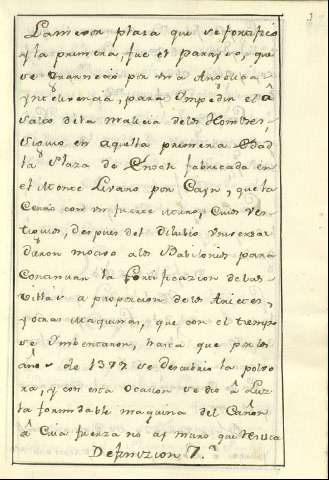 La mexor plaza que se fortificó
y la primera, fue el parayso, que
se guarneció por una Angelica
yntelixencia, para Ympedir el â
salto de la malicia de los Hombres,
siguio en aquella primera Edad
la Plaza de Enoch fabricada en
el Monte Livano por Cayn, que la
Cercó con un fuerte Muro, Cuios ves-
tigios, despues del dilubio universal
dieron motivo a los Babilonios para
Continuar la fortificazion de las
Villas a proporcion de los Arietes,
y otras Maquinas, que con el tiempo
se Ymbentaron, hasta que por los
años de 1377 se descubrio la polvo
ra, y con esta Ocacion se dio â Luz
la formidable maquina del Cañon
â Cuia fuerza no ay muro que resista
Definizion 7.ª